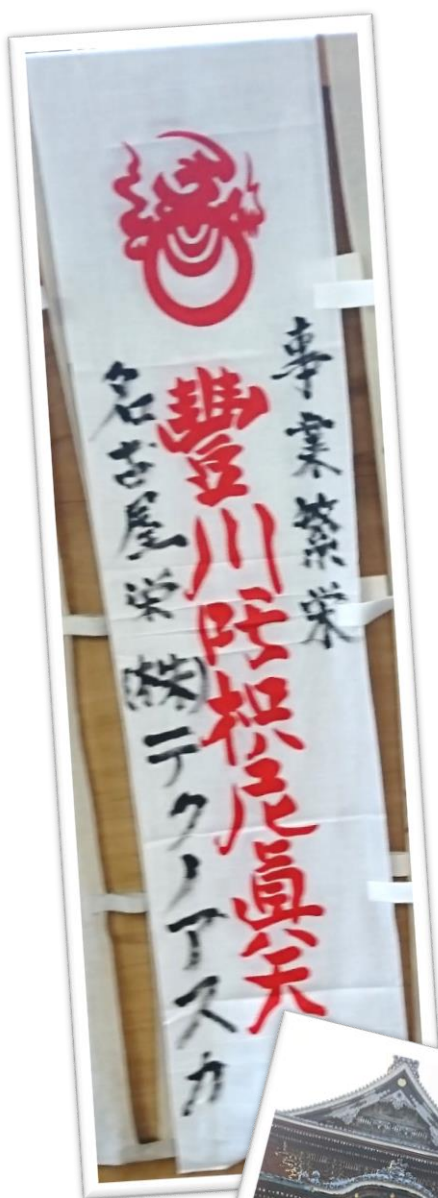 事業繁栄
豐川陀枳尼眞天
名古屋栄 ㈱テクノアスカ